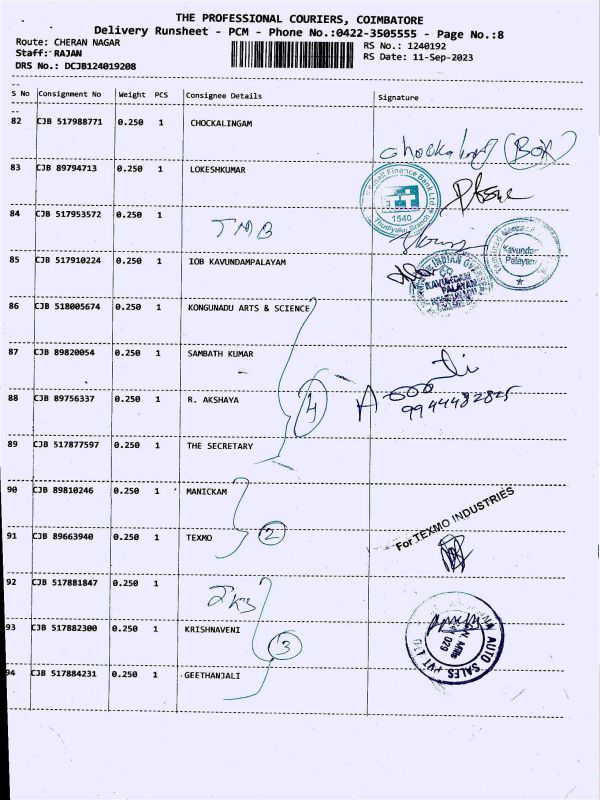 THE PROFESSIONAL COURIERS, COIMBATORE
Delivery Runsheet - PCM - Phone No.:0422-3505555 - Page No.:8
Route: CHERAN NAGAR
Staff: RAJAN
DRS No.: DCJB124019208
RS No.: 1240192
RS Date: 11-Sep-2023
S No Consignment No Weight PCS Consignee Details Signature
82 CJB 517988771 0.250 1 CHOCKALINGAM
chockaling (BOX)
83 CJB 89794713 0.250 1 LOKESHKUMAR
Small Finance Bank Ltd
1540
84 CJB 517953572 0.250 1 TMB
85 CJB 517910224 0.250 1 IOB KAVUNDAMPALAYAM
Kavundam
Palayam
INDIAN
KAVUNDAM
PALAYAM
86 CJB 518005674 0.250 1 KONGUNADU ARTS & SCIENCE
87 CJB 89820054 0.250 1 SAMBATH KUMAR
88 CJB 89756337 0.250 1 R. AKSHAYA
4
9944482825
89 CJB 517877597 0.250 1 THE SECRETARY
90 CJB 89810246 0.250 1 MANICKAM
91 CJB 89663940 0.250 1 TEXMO
2
For TEXMO INDUSTRIES
92 CJB 517881847 0.250 1
93 CJB 517882300 0.250 1 KRISHNAVENI
3
94 CJB 517884231 0.250 1 GEETHANJALI
AUTO SALES PVT LTD
029